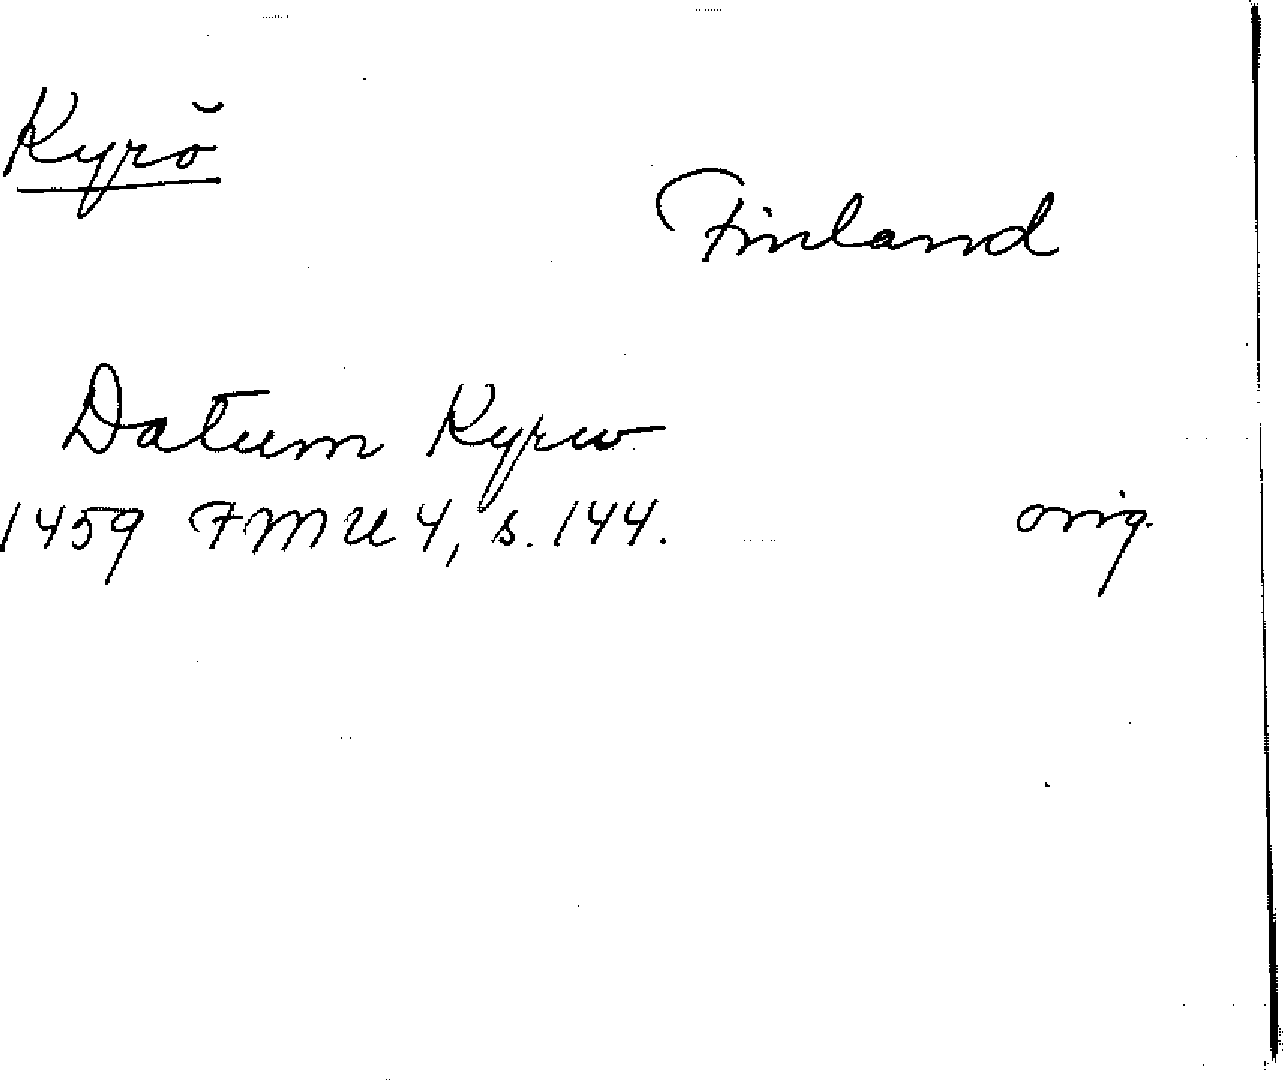 Kyrö
Finland
Datum Kyrw
1459 FMU 4, s. 144. orig.